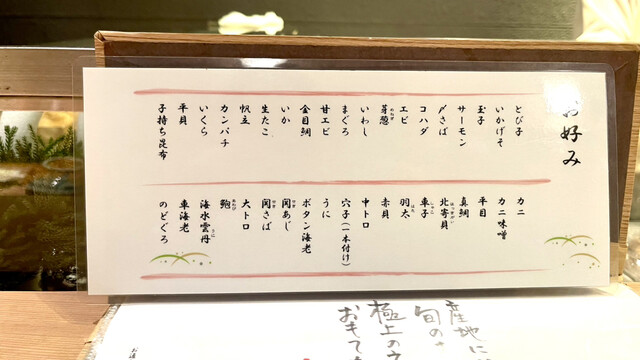 お好み
とび子
いかげそ
玉子
サーモン
〆さば
コハダ
エビ
芽葱
いわし
まぐろ
甘エビ
金目鯛
いか
生たこ
帆立
カンパチ
いくら
平貝
子持ち昆布
カニ
カニ味噌
平目
真鯛
北寄貝
車子
羽太
赤貝
中トロ
穴子(一本付け)
うに
ボタン海老
関あじ
関さば
大トロ
鮑
海水雲丹
車海老
のどぐろ
産地に
旬の
極上の
おもて